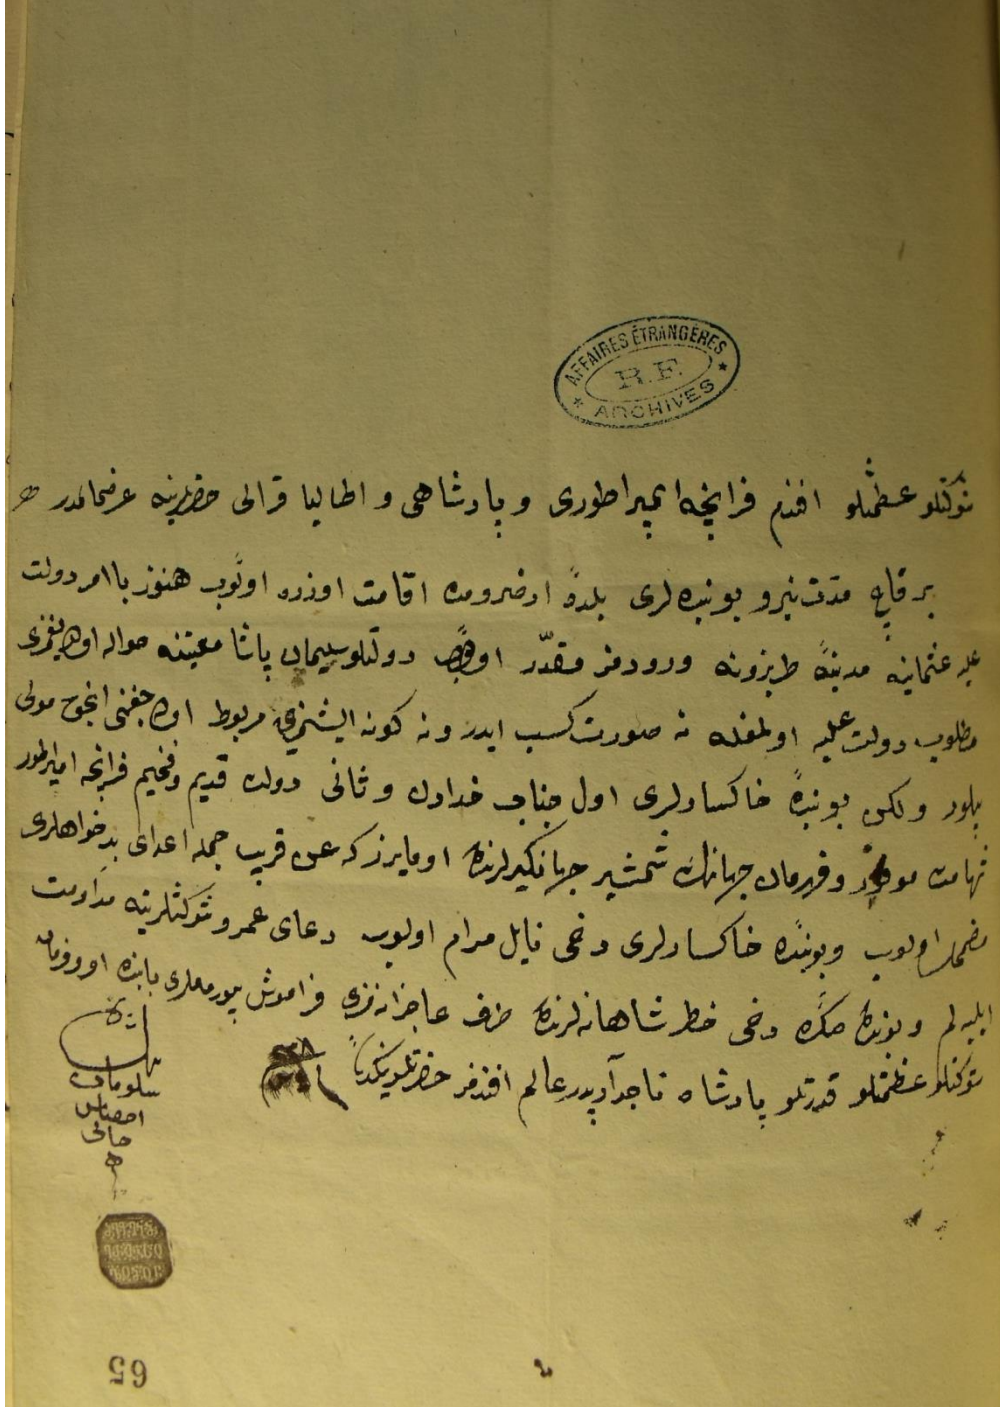 AFFAIRES ÉTRANGÈRES
R.F.
ARCHIVES
شوکتلو عظمتلو افندم فرانچه ایمپراطوری و پادشاهی و اطالیا قرالی حضرتلرینه عرضحالمدر
بر قاچ مدت نبرو بو بنده لری بلدهٔ ارضرومده اقامت اوزره اولوب هنوز با امر دولت
علیه عثمانیه مدینهٔ طربزونه ورودمز مقدّر اولوب دولتلو سلیمان پاشا معیتنه حواله
مطلوب دولت علیه اولمغله نه صورت کسب ایدر و نه کونه ایشمزی مربوط اوله جغنی انجق مولی
بیلور ولکن بو بندهٔ خاکسارلری اول جناب خدادن و ثانی دولت قدیم و فخیم فرانچه
شهامت و قهرمان جهانک شمشیر جهانکیرلرندن اومارز که عن قریب جمله اعدای بدخواهلری
مضمحل اولوب و بو بنده خاکسارلری دخی نایل مرام اولوب دعای عمر و شوکتلرینه مداومت
ایلیه لم و بوندن صکره دخی خطر شاهانه لرندن طرف عاجزانه مزی فراموش بیورمملری بابنده امر و فرمان
شوکتلو عظمتلو قدرتلو پادشاه تاجدار عالم افندمز حضرتلرینکدر
بنده
سلومان
خانی
65